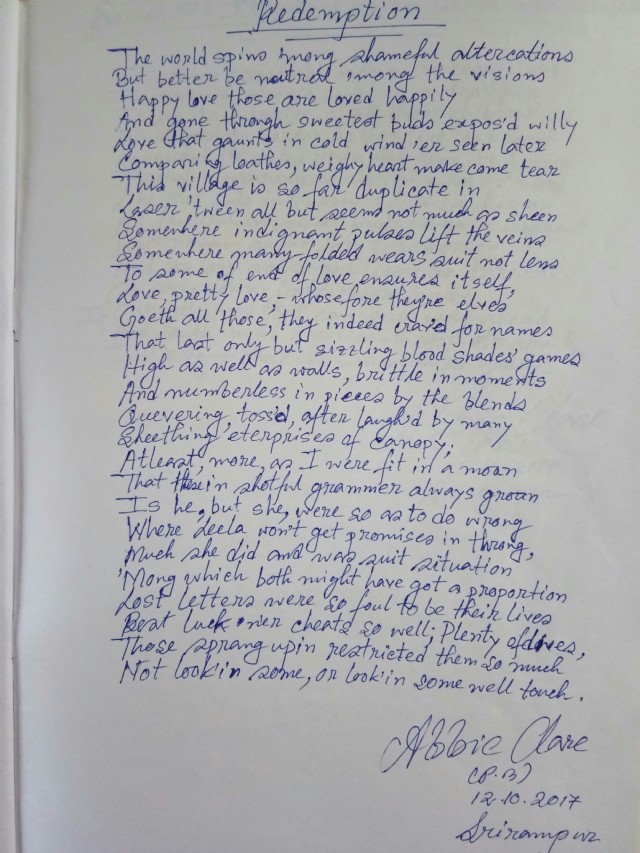 Redemption
The world spins 'mong shameful altercations
But better be neutral 'mong the visions
Happy love those are loved happily
And gone through sweetest buds expos'd willy
Love that gaunts in cold wind 'er seen later
Comparing loathes, weighy heart make come tear
This village is so far duplicate in
Laser 'tween all but seems not much as sheen
Somewhere indignant pulses lift the veins
Somewhere many-folded wears suit not lens
To some of end of love ensures itself,
Love, pretty love, - whosefore they're elves
Goeth all those, they indeed crav'd for names
That last only but sizzling blood shades' games
High as well as walls, brittle in moments
And numberless in pieces by the blends
Quevering, toss'd, after laugh'd by many
Sheething eterprises of canopy;
Atleast, more, as I were fit in a moan
That these in shotful grammer always groan
Is he, but she, were so as to do wrong
Where Leela won't get promises in throng,
Much she did and was suit situation
'Mong which both might have got a proportion
Lost letters were so foul to be their lives
Best luck o'er cheats so well; Plenty of dives,
Those sprang upin restricted them so much
Not look'in some, or look'in some well touch.
Abbie Clare
(P.B)
12.10.2017
Srirampur